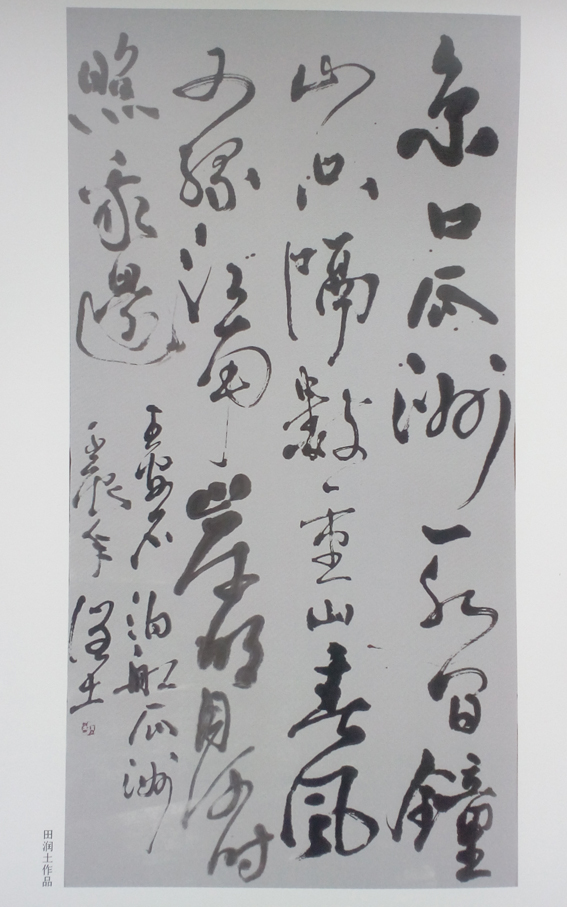 京口瓜洲一水间鐘
山只隔數重山春風
又綠江南岸明月何时
照我還
王安石泊船瓜洲
辰年潤土
田润土作品